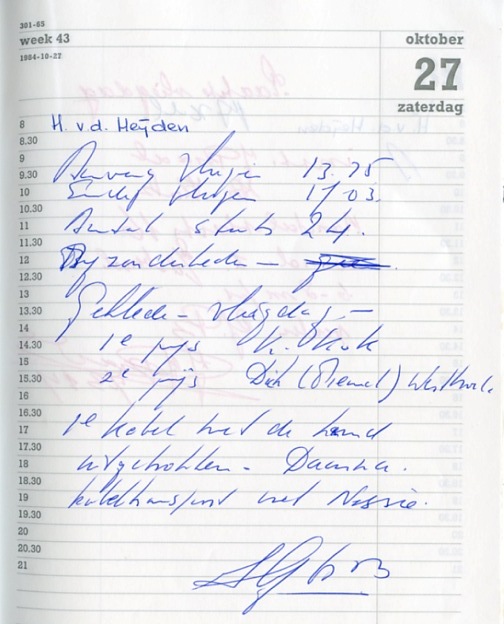 301-65
week 43
1984-10-22
oktober
27
zaterdag
8 H. v.d. Heijden
8.30
9 Aanvang vliegen
9.30
10 Einde vliegen 17.03.
10.30
11 Aantal starts 24.
11.30
12 Byzonderheden —
12.30
13
13.30 vliegdag —
14
14.30 1e prijs K. Kok
15
15.30 2e prijs Dick
16
16.30
17 1e kabel met de hand
17.30
18 uitgetrokken - Daarna
18.30
19 kabeltransport met Nessie.
19.30
20
20.30
21